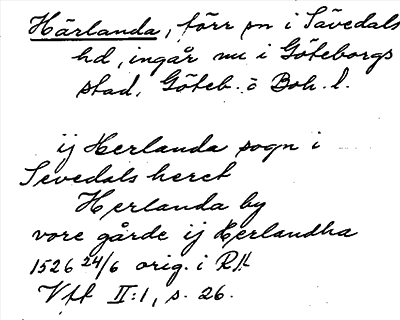 Härlanda, förr sn i Sävedals
hd, ingår nu i Göteborgs
stad, Göteb. o Boh. l.
ij Herlanda sogn i
Sevedals heret
Herlanda by
vore gårde ij Herlandha
1526 24/6 orig. i RA
Vft II:1, s. 26.